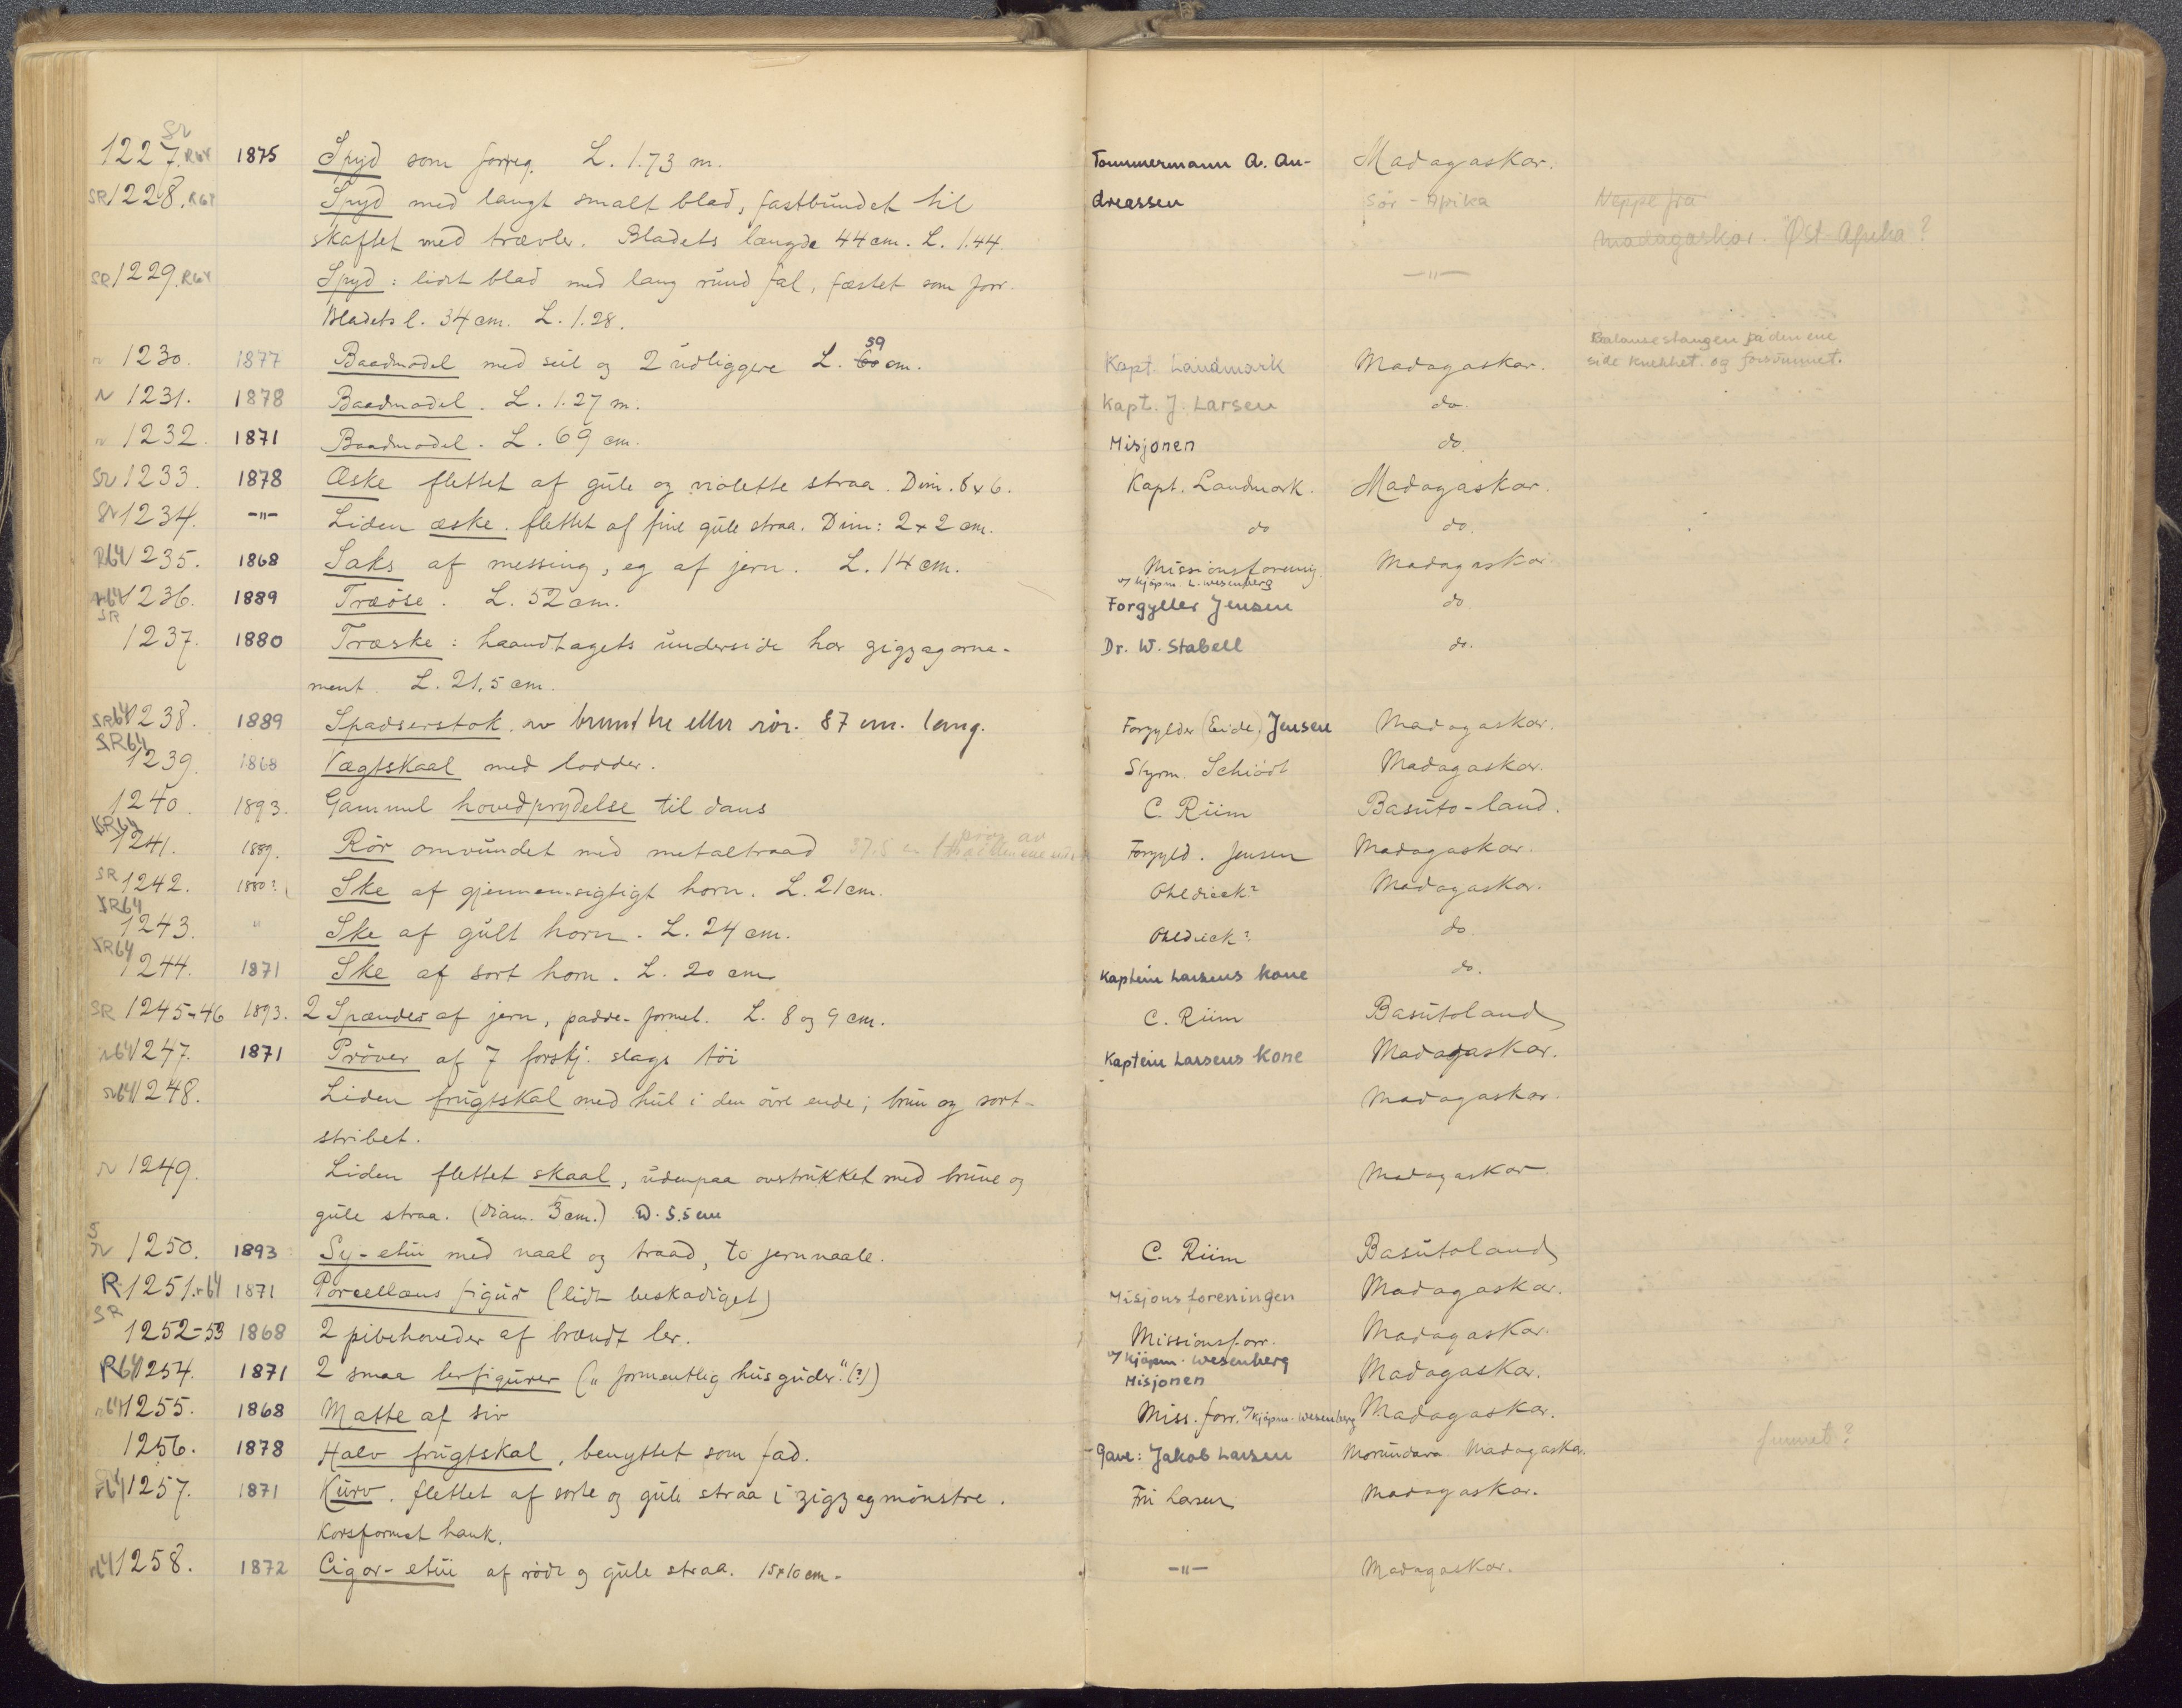 SR
1227. R64 1875 Spyd som forreg. L. 1.73 m. Tømmermann A. An- Madagaskar.
SR 1228. R64 Spyd med langt smalt blad, fastbundet til dreassen Sør-Afrika Neppe fra
skaftet med trævler. Bladets længde 44 cm. L. 1.44 Madagaskar. Øst-Afrika?
SR 1229. R64 Spyd: lidt blad med lang rund fal, fæstet som forr. —"—
Bladets l. 34 cm. L. 1.28.
r 1230. 1877 Baadmodel med seil og 2 udliggere L. 60 59 cm. Kapt. Landmark Madagaskar. Balansestangen på den ene
side knekket og forsvunnet.
r 1231. 1878 Baadmodel. L. 1.27 m. Kapt. J. Larsen do.
r 1232. 1871 Baadmodel. L. 69 cm. Misjonen do.
Sr 1233. 1878 Æske flettet af gule og violette straa. Dim. 8x6. Kapt. Landmark. Madagaskar.
Sr 1234. -"- Liden æske. flettet af fine gule straa. Dim: 2x2 cm. do do.
R64 1235. 1868 Saks af messing, eg af jern. L. 14 cm. Missionsforenig. Madagaskar
v/ Kjøpm. L. Wesenberg
r64 1236. 1889 Træøse. L. 52 cm. Forgyller Jensen do
SR
1237. 1880 Træske: haandtagets underside har zigzagorne- Dr. W. Stabell do.
ment. L. 21,5 cm.
SR64 1238. 1889 Spadserstok. av brunt tre eller rör. 87 cm. lang. Forgylder (Eide) Jensen Madagaskar.
SR64
1239. 1868 Vægtskaal med lodder. Styrm. Schiödt Madagaskar.
1240. 1893. Gammel hovedprydelse til dans C. Riim Basuto-land.
SR64
1241. 1889. Rör omvundet med metaltraad 37.5 cm Forgyld. Jensen Madagaskar.
SR 1242. 1880? Ske af gjennemsigtigt horn. L. 21 cm. Ohldieck? Madagaskar.
SR64
1243. " Ske af gult horn. L. 24 cm. Ohldieck? do
SR64
1244. 1871 Ske af sort horn. L. 20 cm Kaptein Larsens kone do.
SR 1245-46 1893. 2 Spænder af jern, padde-formet. L. 8 og 9 cm. C. Riim Basutoland
r64 1247. 1871 Pröver af 7 forskj. slags töi Kaptein Larsens kone Madagaskar.
r64 1248. Liden frugtskal med hul i den övre ende; brun og sort- Madagaskar.
stribet.
r 1249. Liden flettet skaal, udenpaa overtrukket med brune og Madagaskar
gule straa. (diam. 5 cm.) D. 5.5 cm
S
r 1250. 1893 Sy-etui med naal og traad, to jernnaale. C. Riim Basutoland
R 1251. r64 1871 Porcellæns figur (lidt beskadiget) Misjonsforeningen Madagaskar.
SR
1252-53 1868 2 pibehoveder af brændt ler. Missionsforr. Madagaskar.
v/ Kjöpm. Wesenberg
R64 1254. 1871 2 smaa lerfigurer („formentlig husguder." (?)) Misjonen Madagaskar.
r64 1255. 1868 Matte af siv Miss. forr. v/ Kjöpm. Wesenberg Madagaskar.
1256. 1878 Halv frugtskal, benyttet som fad. Gave: Jakob Larsen Morundava Madagaskar. funnet?
r64 1257. 1871 Kurv. flettet af sorte og gule straa i zigzagmönstre. Fru Larsen Madagaskar.
Korsformet hank.
r64 1258. 1872 Cigar-etui af röde og gule straa. 15x10 cm. —"— Madagaskar.